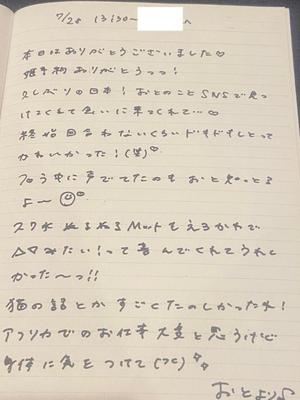 7/28 13:30〜 へ
本日はありがとうございました♡
ありがとうっっ!
久しぶりの日本!おとのことSNSで見つ
けてくれて会いに来てくれて…♡
終始目合わないくらいドギドギしとって
かわいかった!(笑)♡
声でてたのもおと知っとる
よ〜☺♡
スク水 ぬるぬるMattもえろかれて
みたい!って喜んでくれてうれし
かった〜っ!!
猫の話とかすごくたのしかったわ!
アフリカでのお仕事大変と思うけど
身体に気をつけて
おとより♪